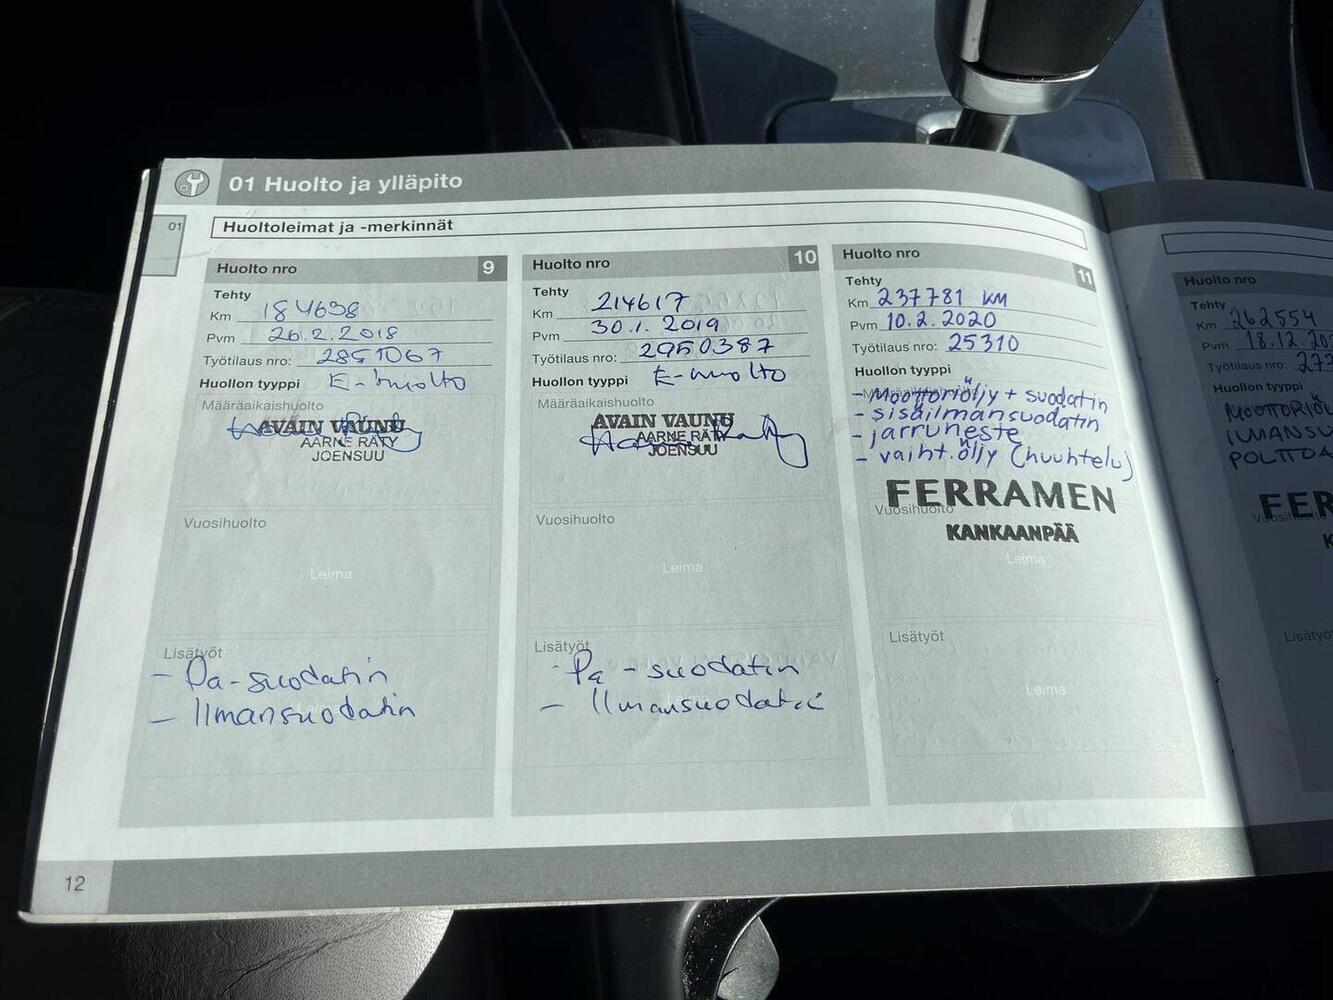 01 Huolto ja ylläpito
01
Huoltoleimat ja -merkinnät
Huolto nro 9
Tehty
Km 184698
Pvm 26.2.2018
Työtilaus nro: 2851067
Huollon tyyppi E-huolto
Määräaikaishuolto
AVAIN VAUNU
AARNE RÄTY
JOENSUU
Vuosihuolto
Leima
Lisätyöt
- Pa-suodatin
- Ilmansuodatin
Leima
Huolto nro 10
Tehty
Km 214617
Pvm 30.1.2019
Työtilaus nro: 2950387
Huollon tyyppi E-huolto
Määräaikaishuolto
AVAIN VAUNU
AARNE RÄTY
JOENSUU
Vuosihuolto
Leima
Lisätyöt
- Pa-suodatin
- Ilmansuodatin
Leima
Huolto nro 11
Tehty
Km 237781 KM
Pvm 10.2.2020
Työtilaus nro: 25310
Huollon tyyppi
Määräaikaishuolto
- Moottoriöljy + suodatin
- sisäilmansuodatin
- jarruneste
- vaiht.öljy (huuhtelu)
FERRAMEN
Vuosihuolto
KANKAANPÄÄ
Leima
Lisätyöt
Leima
12
Huolto nro
Tehty
Km 262554
Pvm 18.12.
Työtilaus nro:
Huollon tyyppi
FER
Vuosihuolto
Lisätyöt